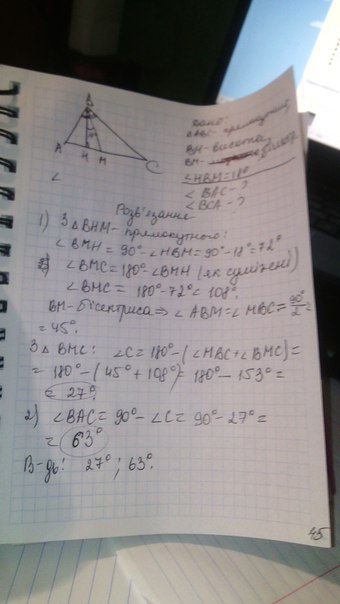 B
A H M C
Дано:
△ABC - прямокутний,
BH - висота
BM -
∠HBM = 18°
∠BAC - ?
∠BCA - ?
∠
Розв'язання
1) З △BHM - прямокутного:
∠BMH = 90° - ∠HBM = 90° - 18° = 72°
∠BMC = 180° - ∠BMH (як суміжні)
∠BMC = 180° - 72° = 108°.
BM - бісектриса ⇒ ∠ABM = ∠MBC = 90°/2 =
= 45°.
З △BMC: ∠C = 180° - (∠MBC + ∠BMC) =
= 180° - (45° + 108°) = 180° - 153° =
= 27°
2) ∠BAC = 90° - ∠C = 90° - 27° =
= 63°
В-дь: 27°; 63°.
45